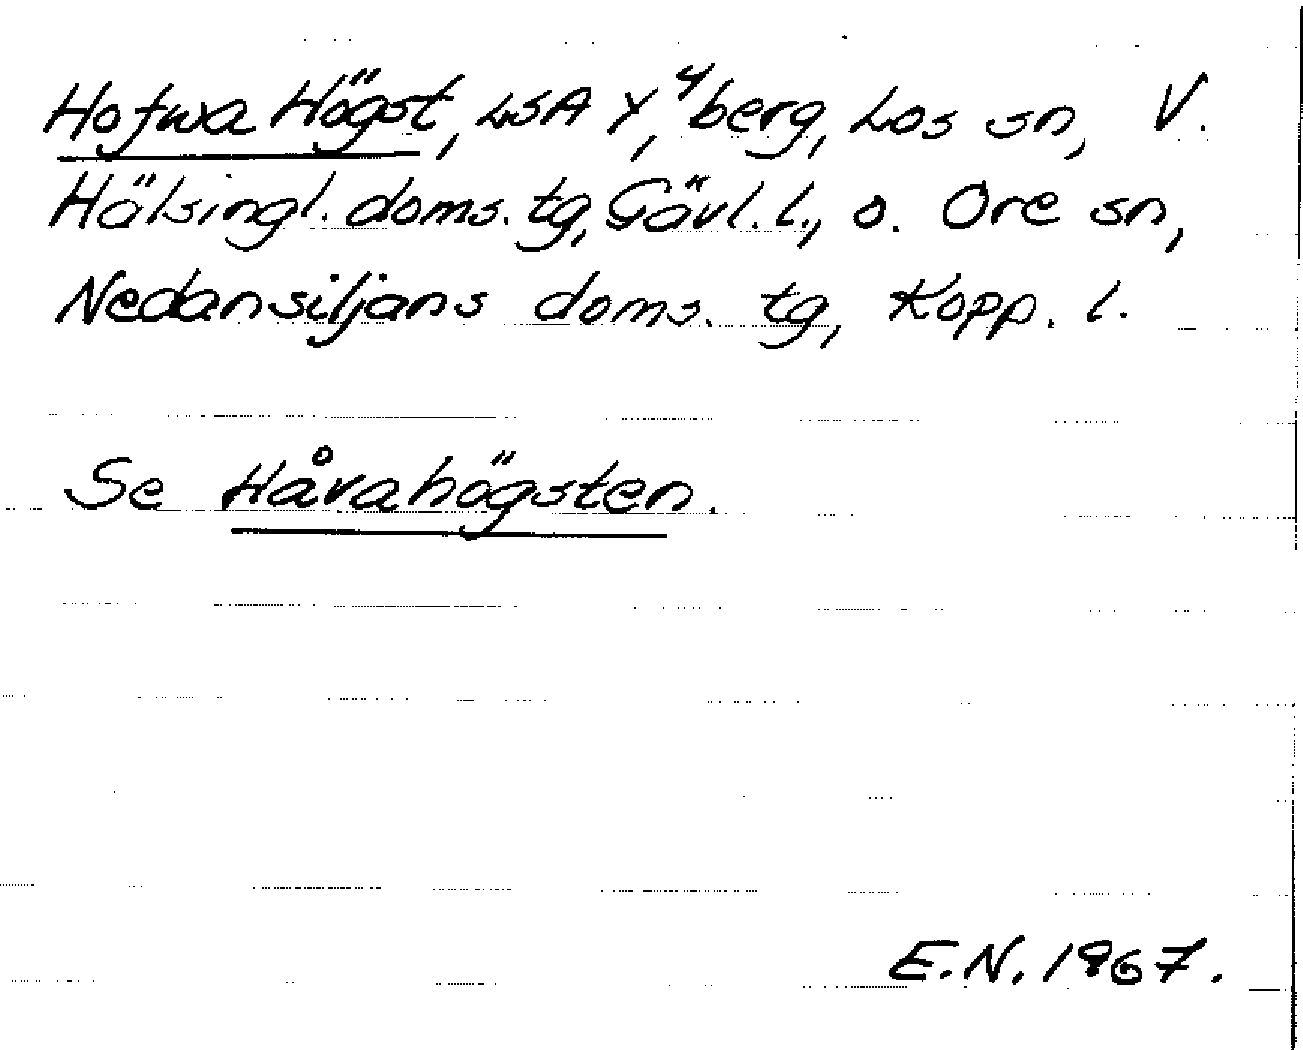 Hofwa Högst, LSA X, 4/berg, Los sn, V.
Hälsingl. doms. tg, Gävl. l., o. Ore sn,
Nedansiljans doms. tg, Kopp. l.
Se Håvahögsten.
E.N. 1967.